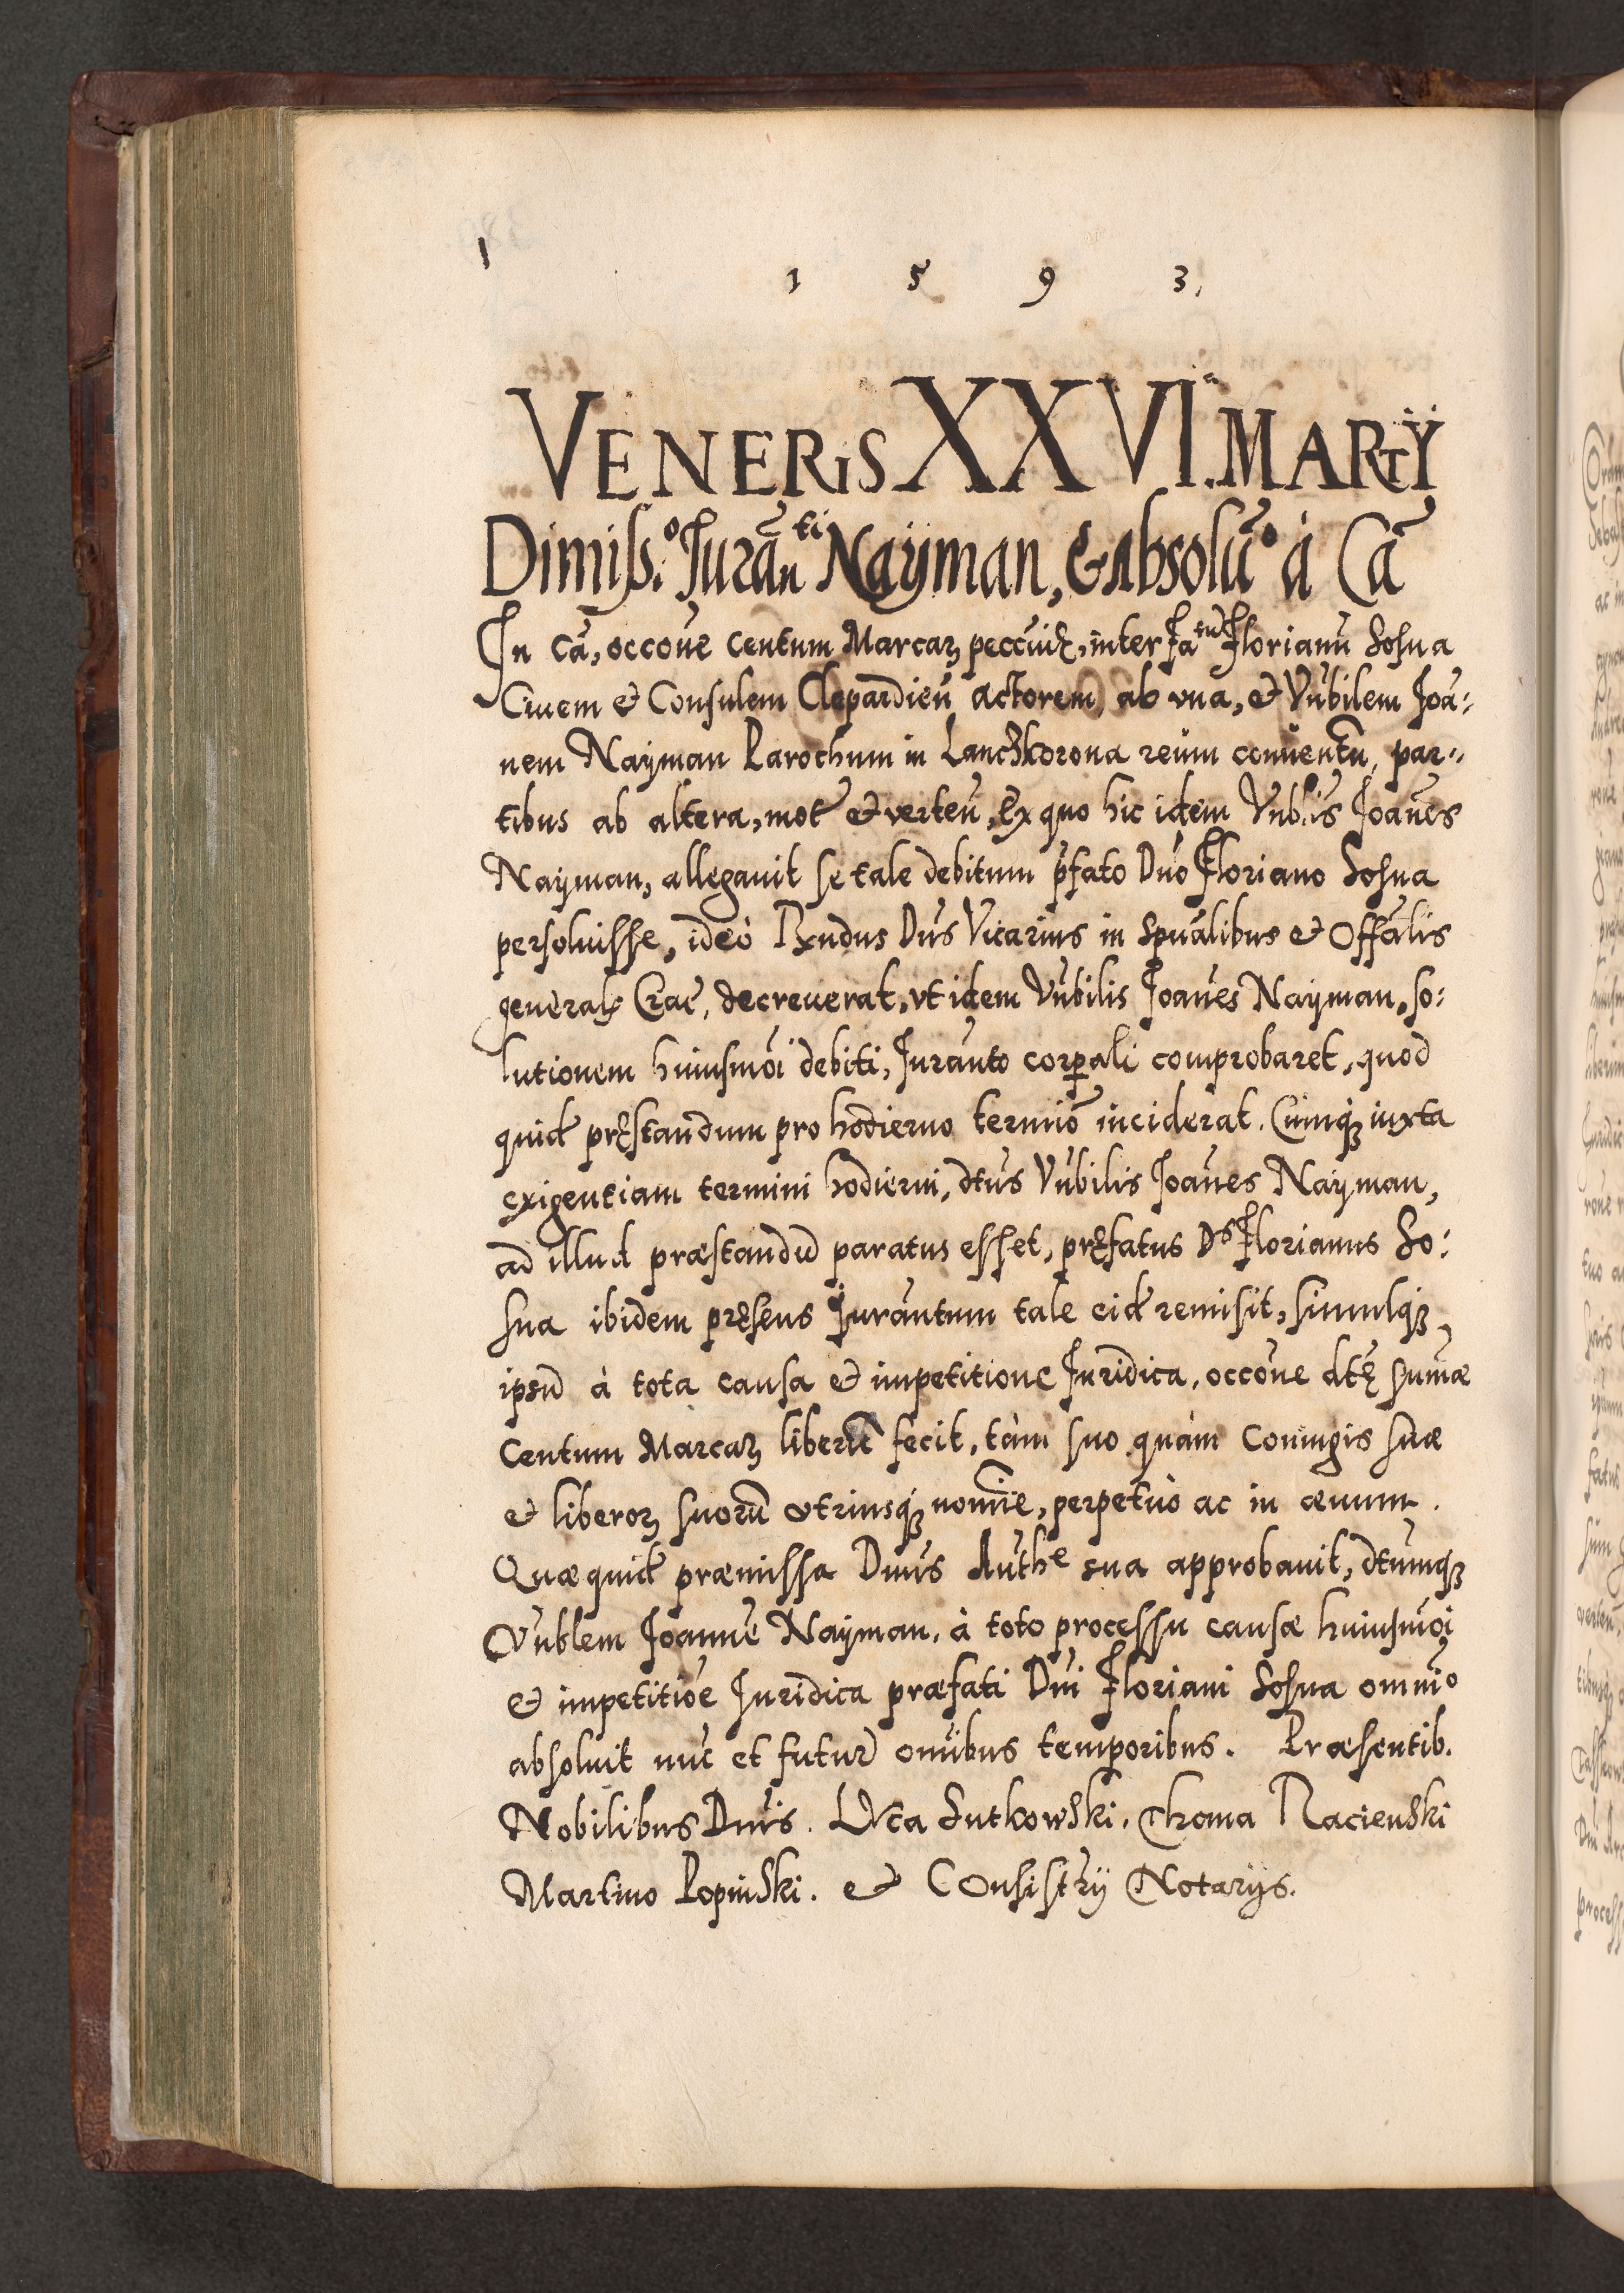 1 5 9 3,
VENERIS XXVI. MARTY
Dimiss.o Jurānti Naÿman, & Absolūo à Cā
In Cā, occōne Centum Marcaꝝ peccuiȩ, inter Fatū Florianū Sosna
Ciuem & Consulem Clepardieñ actorem, ab vna, & Vñbilem Joā:
nem Naÿman Parochum in Lanczkorona reum conuentū, par⸗
tibus ab altera, mot̃ & verteñ, Ex quo hic idem Vnblis̃ Joañes
Naÿman, allegauit se tale debitum p̃fato Dño Floriano Sosna
persoluisse, ideò Rx̃ndus Dñs Vicarius in Spũalibus & Offãlis
generalis Crac̃, decreuerat, vt idem Vñbilis Joañes Naÿman, so:
lutionem huiusmõi debiti, Jurãnto corꝑali comprobaret, quod
quid̃ pręstandum pro hodierno termiõ inciderat. Cumq́ꝫ iuxta
exigentiam termini hodierni, dt̃us Vñbilis Joañes Naÿman,
ad illud præstandũ paratus esset, pręfatus Ds Florianus So:
sna ibidem pręsens Jurãntum tale eid̃ remisit, simulq́ꝫ
ipsũ à tota causa & impetitione Juridica, occõne dt̃ę sum̃æ
Centum Marcaꝝ liberũ fecit, tàm suo quàm Coniugis suæ
& liberoꝝ suorũ vtriusq́ꝫ nomĩe, perpetuò ac in æuum.
Quæ quid̃ præmissa Dnus̃ Auth̃e sua approbauit, dt̃umq́ꝫ
Vñblem Joannẽ Naÿman, à toto processu causæ huiusmõi
& impetitiõe Juridica præfati Dñi Floriani Sosna omnĩo
absoluit nũc et futur̃ om̃ibus temporibus. Præsentib.
Nobilibus Dnis̃. Luca Sutkowski, Thoma Racienski
Martino Popinski. & Consistrÿ Notarÿs.